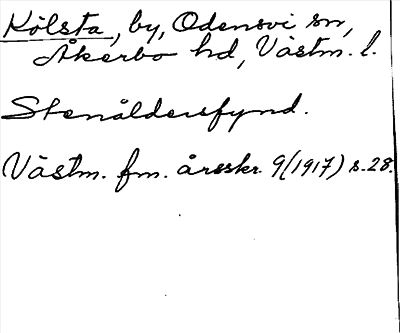 Kölsta, by, Odensvi sn,
Åkerbo hd, Västm. l.
Stenåldersfynd.
Västm. fm. årsskr. 9 (1917) s. 28.